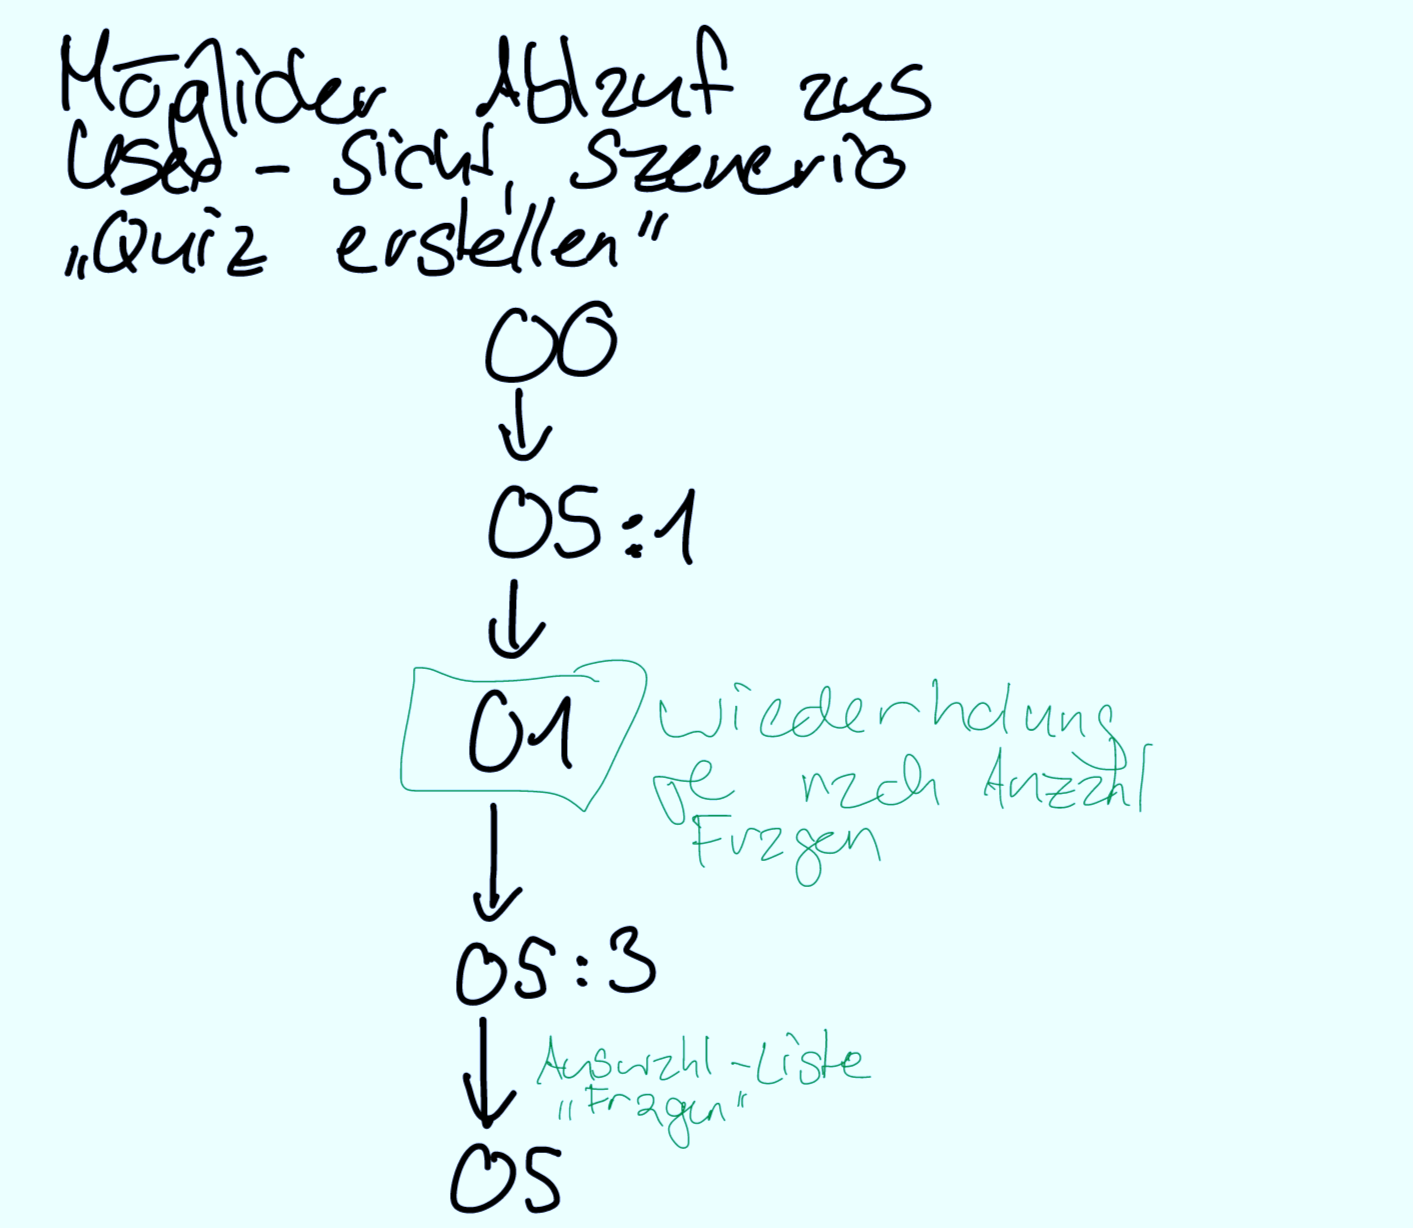 Möglicher Ablauf aus
User-Sicht, Szenario
„Quiz erstellen"
00
05:1
01
Wiederholung
je nach Anzahl
Fragen
05:3
Auswahl-Liste
"Fragen"
05